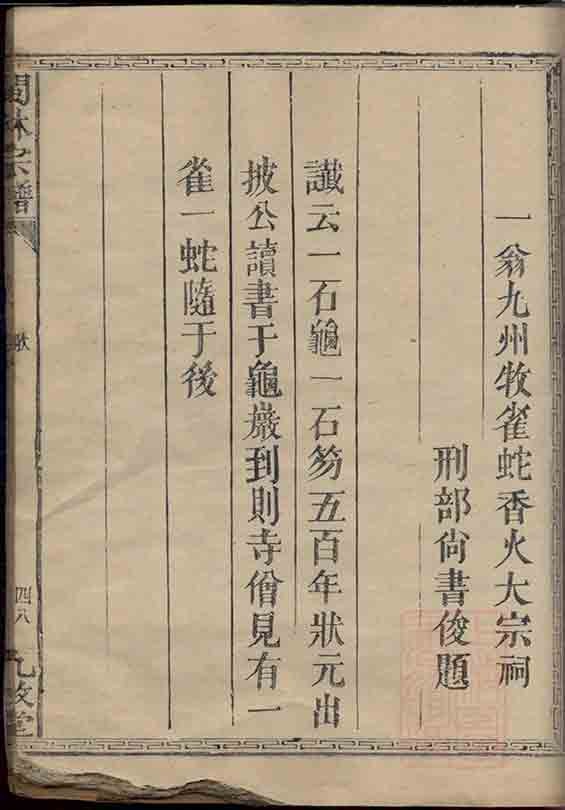 一翁九州牧雀蛇香火大宗祠
刑部尚書俊題
讖云一石龜一石笏五百年狀元出
披公讀書于龜巖到則寺僧見有一
雀一蛇隨于後
林宗譜
歌
四八
九牧堂